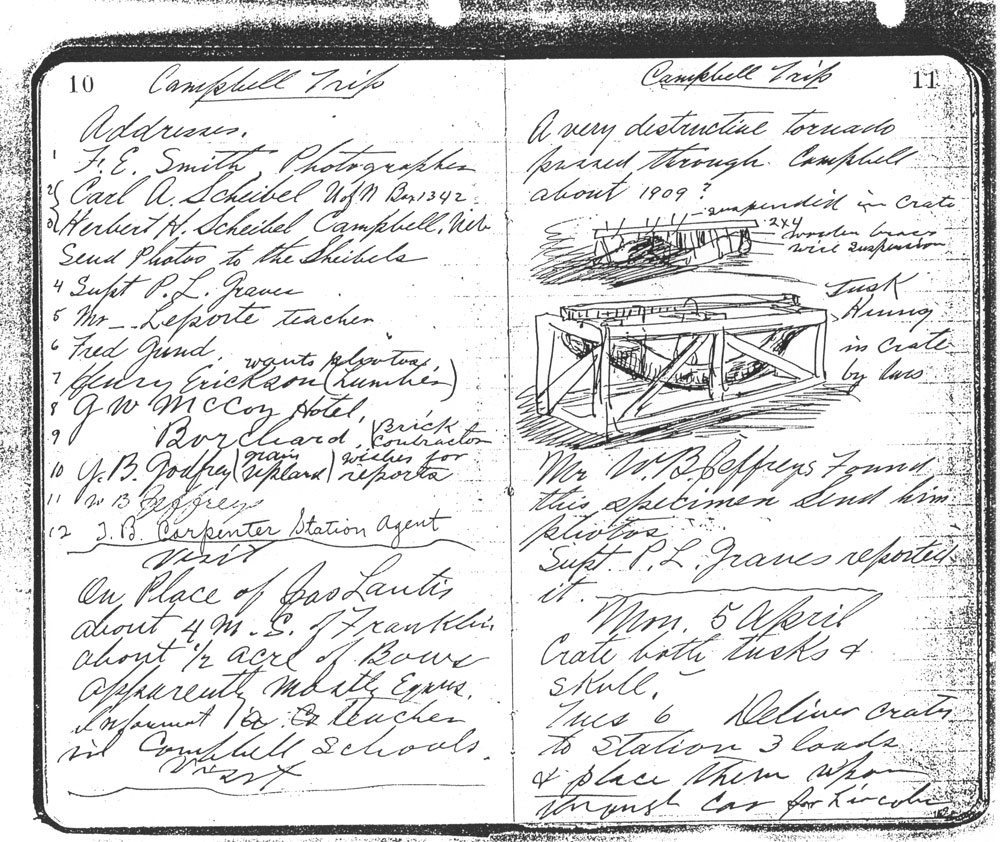 10
Campbell Trip
Addresses.
1 F. E. Smith Photographer
2 Carl A. Scheibel U of N Box 1342
3 Herbert H. Scheibel Campbell, Neb
Send Photos to the Sheibels
4 Supt P. L. Graves
5 Mr — Leporte teacher
6 Fred Gund.
wants photos.
7 Henry Erickson (Lumber)
8 G W McCoy Hotel,
9 Borchard, (Brick Contractor
10 Y. B. Godfrey (grain upland) wishes for reports
11 W B Jeffreys
12 J. B. Carpenter Station Agent
Visit
On Place of Jas Lantis
about 4 M. S. of Franklin
about 1/2 acre of Bones
apparently mostly Equus.
Informant teacher
in Campbell Schools.
Visit
11
Campbell Trip
A very destructive tornado
passed through Campbell
about 1909?
suspended in crate
2x4
wooden braces
wire suspension
Tusk
Hung
in crate
by
Mr W. B. Jeffreys Found
this specimen Send him
photos
Supt. P. L. Graves reported
it.
Mon. 5 April
Crate both tusks &
skull.
Tues 6 Deliver crates
to Station 3 loads
& place them upon
through Car for Lincoln